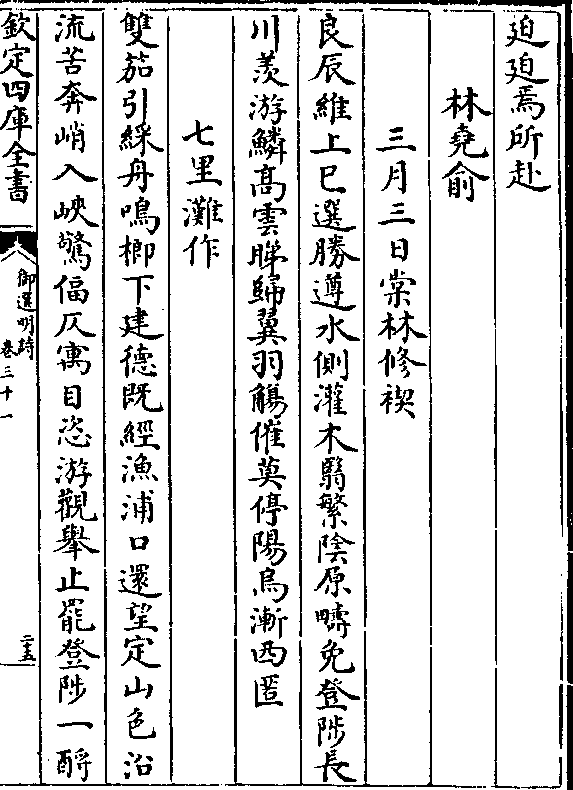 廹廹焉所赴
林堯俞
三月三日棠林修禊
良辰維上巳選勝遵水側灌木翳繁陰原疇免登陟長
川羡游鱗髙雲睇歸翼羽觴催莫停陽烏漸西匿
七里灘作
雙笳引綵舟鳴榔下建德既經漁浦口還望定山色沿
流苦奔峭入峽驚偪仄寓目恣游觀舉止罷登陟一酹
欽定四庫全書
御選明詩
卷三十一
二十五